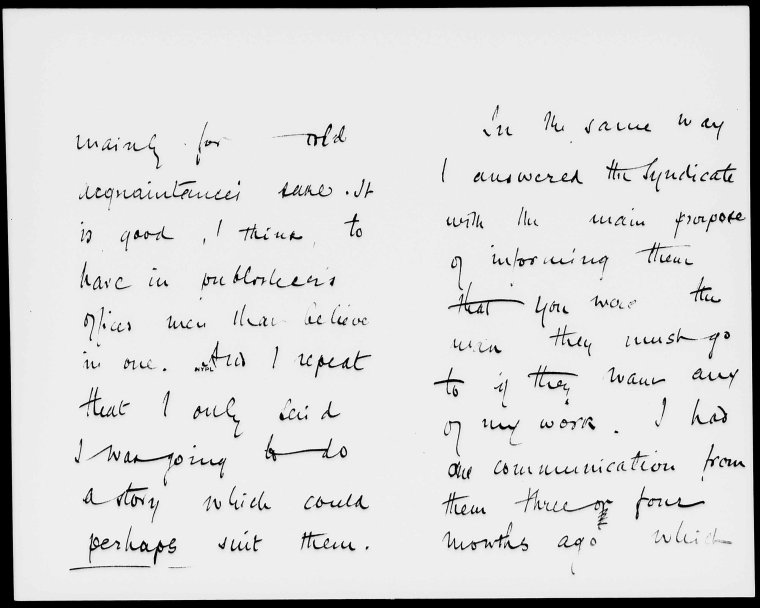 mainly for old
acquaintance's sake. It
is good, I think, to
have in publisher's
offices men that believe
in one. And I repeat
that I only said
I was going to do
a story which could
perhaps suit them.
In the same way
I answered the Syndicate
with the main purpose
of informing them
that you were the
man they must go
to if they want any
of my work. I had
one communication from
them three or four
months ago which